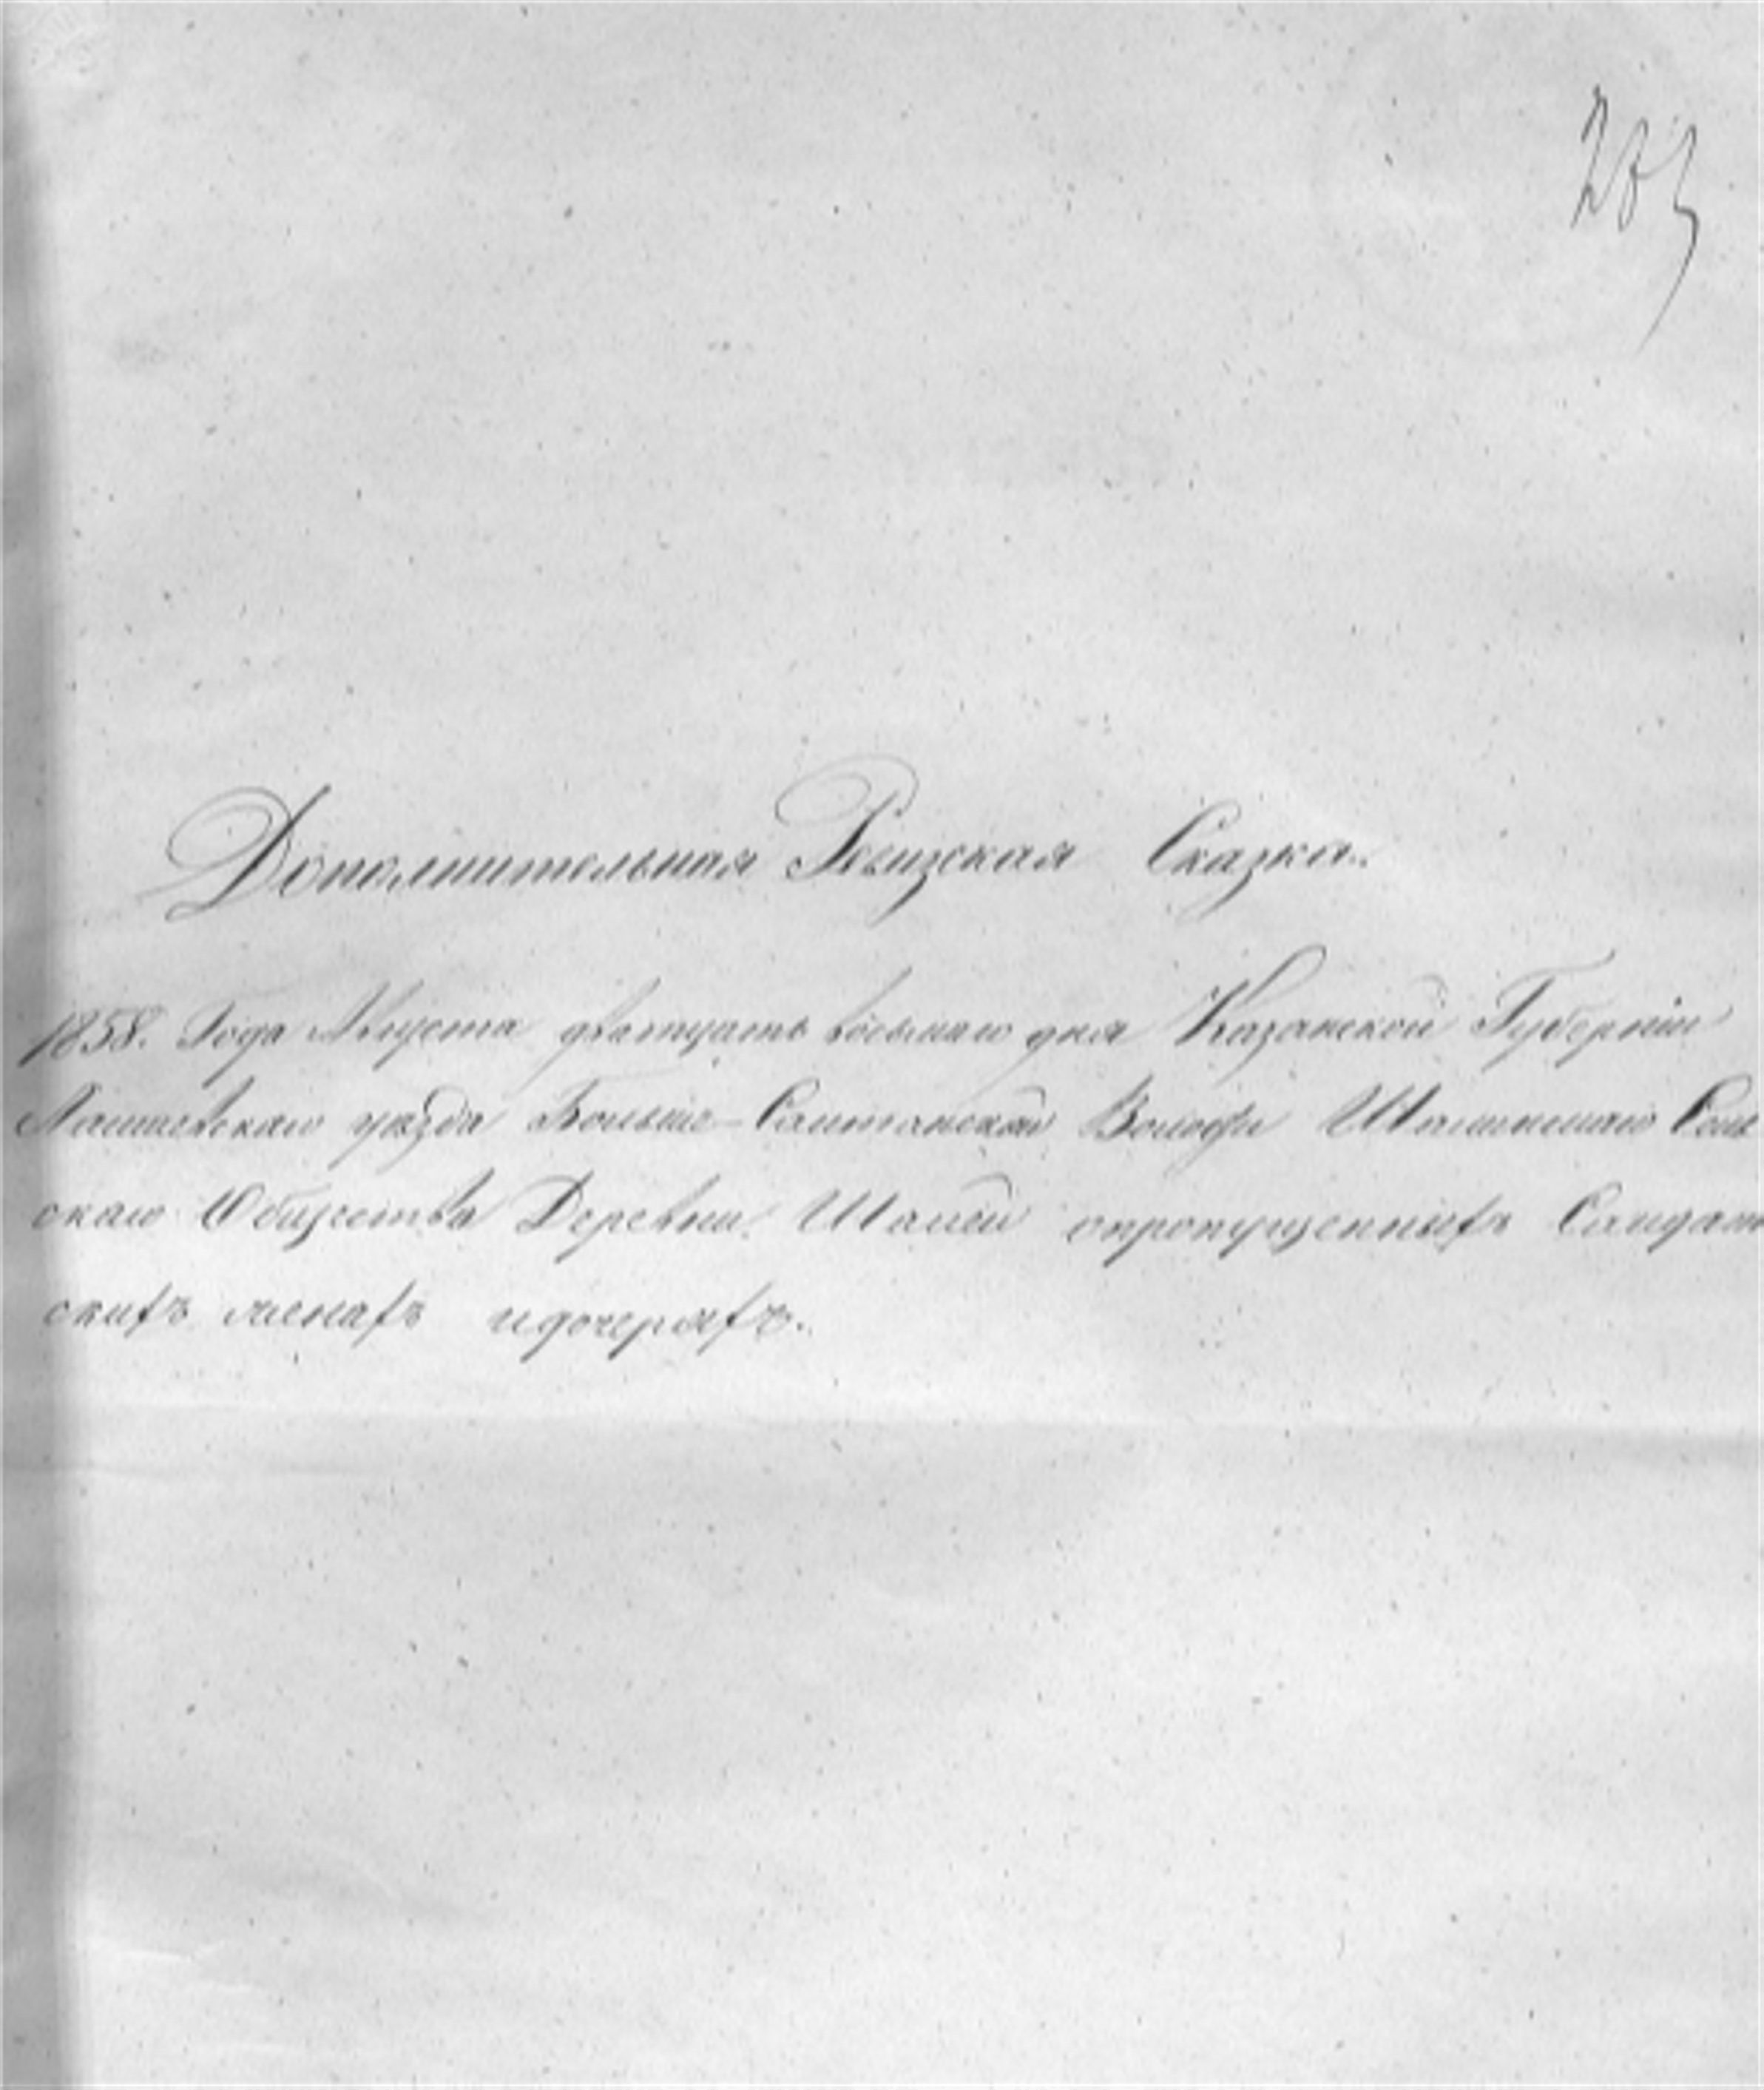 203
Дополнительная Ревизская Сказка.
1858. Года Августа дватцать восьмаго дня Казанской Губерніи
Лаишевскаго уезда Больше-Салтанской Волости Шалинскаго Сель
скаго Общества Деревни Шалей опропущенныхъ Салдат
скихъ женахъ идочеряхъ.